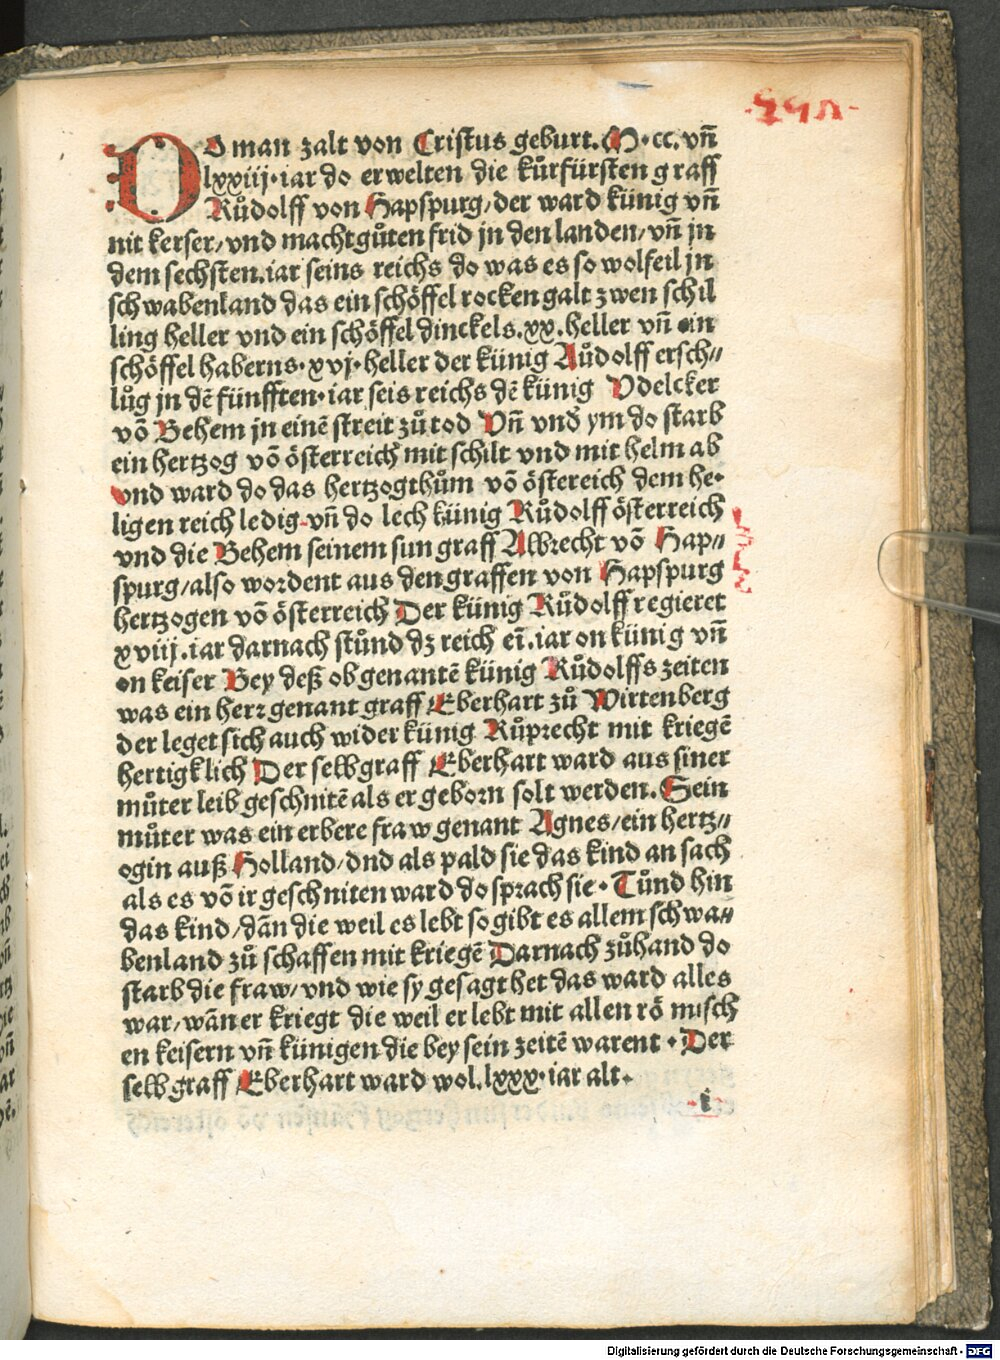 DO man zalt von Cristus geburt. M·cc. vñ
lxxiij·iar do erwelten die kůrfürsten graff
Růdolff von Hapspurg/der ward künig vñ
nit kerser/vnd macht gůten frid jn den landen/vñ jn
dem sechsten.iar seins reichs do was es so wolfeil jn
schwabenland das ein schöffel rocken galt zwen schil
ling heller vnd ein schöffel dinckels.xx.heller vñ ein
schöffel haberns·xvj·heller der künig Růdolff ersch//
lůg jn dē fünfften·iar seis reichs dē künig Vdelcker
vō Behem jn einē streit zů tod Vñ vnď ym do starb
ein hertzog vō österreich mit schilt vnd mit helm ab
vnd ward do das hertzogthům vō östereich dem he·
ligen reich ledig-vñ do lech künig Růdolff österreich
vnd die Behem seinem sun graff Albrecht vō Hap//
spurg/also wordent aus den graffen von Hapspurg
hertzogen vō österreich Der künig Růdolff regieret
xviij.iar darnach stůnd dz reich eī.iar on künig vñ
on keiser Bey deß obgenantē künig Růdolffs zeiten
was ein herr genant graff Eberhart zů Wirtenberg
der leget sich auch wider künig Růprecht mit kriegē
hertigklich Der selb graff Eberhart ward aus siner
můter leib geschnitē als er geborn solt werden. Sein
můter was ein erbere fraw genant Agnes/ein hertz//
ogin auß Holland/dnd als pald sie das kind an sach
als es vō ir geschniten ward do sprach sie·Tůnd hin
das kind/dān die weil es lebt so gibt es allem schwa//
benland zů schaffen mit kriegē Darnach zůhand do
starb die fraw/vnd wie sy gesagt het das ward alles
war/wān er kriegt die weil er lebt mit allen rö misch
en keisern vñ künigen die bey sein zeitē warent·Der
selb graff Eberhart ward wol.lxxx·iar alt·
Digitalisierung gefördert durch die Deutsche Forschungsgemeinschaft - DFG